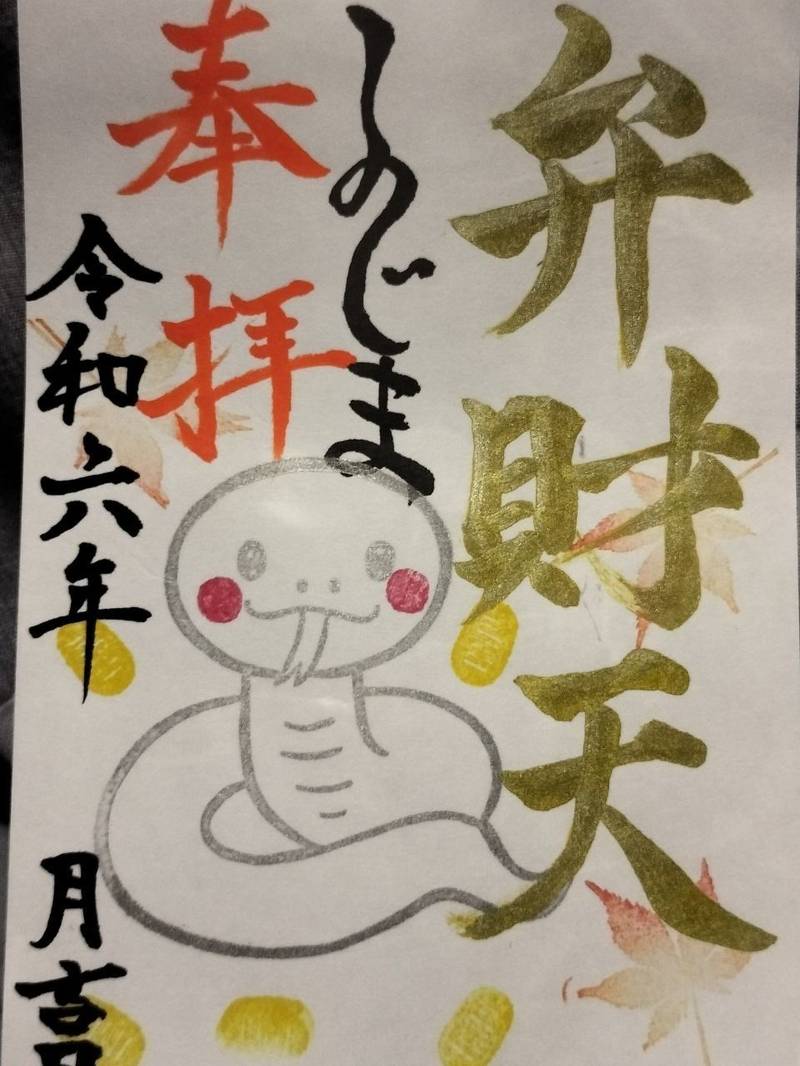 弁財天
しのじま
奉拝
令和六年
月吉日